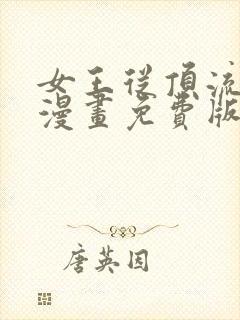 女王從頂流
漫畫免費版
唐英因